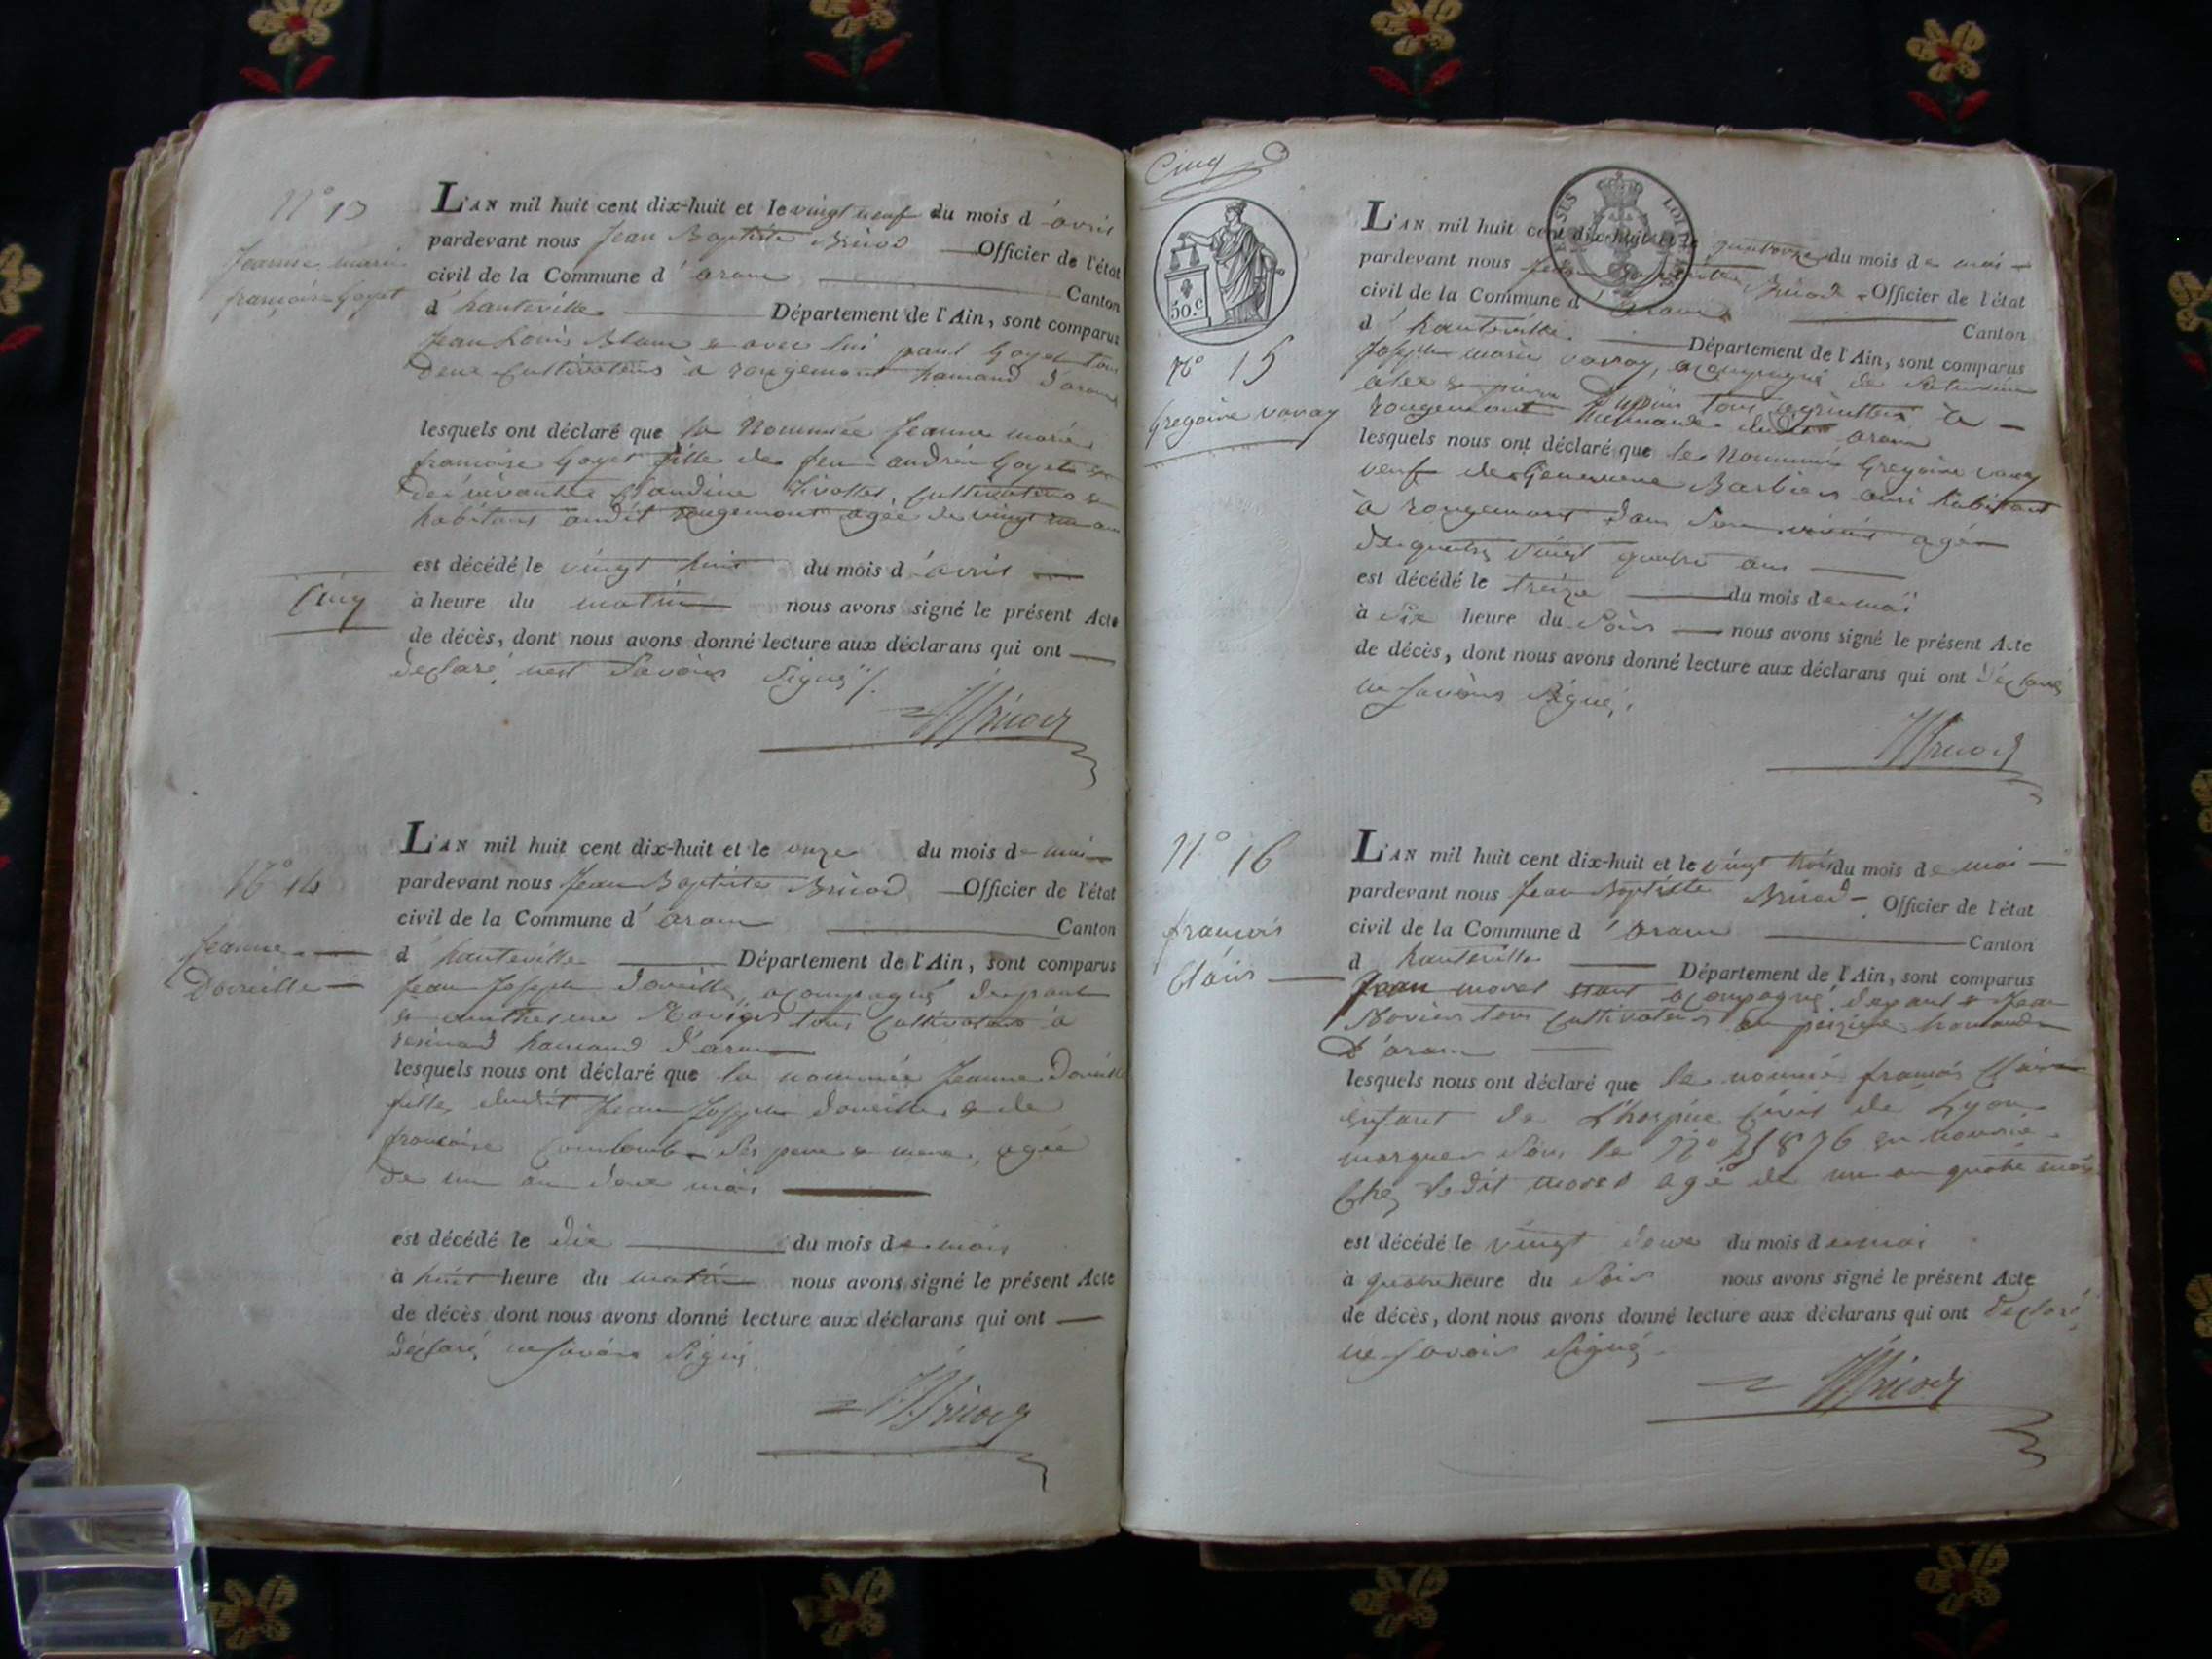 N° 13
Jeanne marie
françoise Goyet
Cinq
L'AN mil huit cent dix-huit et le vingt neuf du mois d'avril
pardevant nous Jean Baptiste Briod Officier de l'état
civil de la Commune d'aram Canton
d'hauteville Département de l'Ain, sont comparus
Jean Louis Blanc & avec lui paul Goyet tous
deux cultivateurs à rougemont hamaud d'aram
lesquels ont déclaré que la Nommée Jeanne marie
françoise Goyet fille de feu andré Goyet &
de vivante Claudine cultivateurs &
habitans audit rougemont agée de vingt
est décédé le vingt huit du mois d'avril
à heure du matin nous avons signé le présent Acte
de décès, dont nous avons donné lecture aux déclarans qui ont
declaré nest Savoir Signé
JBriod
N° 14
Jeanne
Doveille
L'AN mil huit cent dix-huit et le onze du mois de mai
pardevant nous Jean Baptiste Briod Officier de l'état
civil de la Commune d'aram Canton
d'hauteville Département de l'Ain, sont comparus
Jean Joseph Doveille acompagné de paul
& tous cultivateurs à
resinand hamaud d'aram
lesquels nous ont déclaré que la nommée Jeanne Doveille
fille dudit Jean Joseph doveille & de
francoise ses pere & mere, agée
de un an deux mois
est décédé le dix du mois de mai
à huit heure du matin nous avons signé le présent Acte
de décès dont nous avons donné lecture aux déclarans qui ont
déclaré ne savoir Signé
JBriod
Cinq
50.c
N° 15
Gregoire vavay
L'AN mil huit cent dix-huit et le quatorze du mois de mai
pardevant nous Jean Baptiste Briod Officier de l'état
civil de la Commune d'aram Canton
d'hauteville Département de l'Ain, sont comparus
Joseph marie vavay, acompagné de
& pierre Dupuis tous à
rougemont dudit aram
lesquels nous ont déclaré que le Nommé Gregoire vavay
veuf de Genevieve Barbier habitant
à rougemont dans son vivant agé
de quatre vingt quatre ans
est décédé le treize du mois de mai
à Six heure du Soir nous avons signé le présent Acte
de décès, dont nous avons donné lecture aux déclarans qui ont déclaré
ne Savoir Signé
JBriod
N° 16
francois
Clair
L'AN mil huit cent dix-huit et le vingt trois du mois de mai
pardevant nous Jean Baptiste Briod Officier de l'état
civil de la Commune d'aram Canton
d hauteville Département de l'Ain, sont comparus
Jean morel acompagné de paul & Jean
tous cultivateurs hamaud
d'aram
lesquels nous ont déclaré que le nommé francois Clair
enfant de L'hospice Civil de Lyon
marquer Sous le N° en nourrice
chez ledit morel agé de un an quatre mois
est décédé le vingt deux du mois de mai
à quatre heure du Soir nous avons signé le présent Acte
de décès, dont nous avons donné lecture aux déclarans qui ont declaré
ne Savoir Signé
JBriod